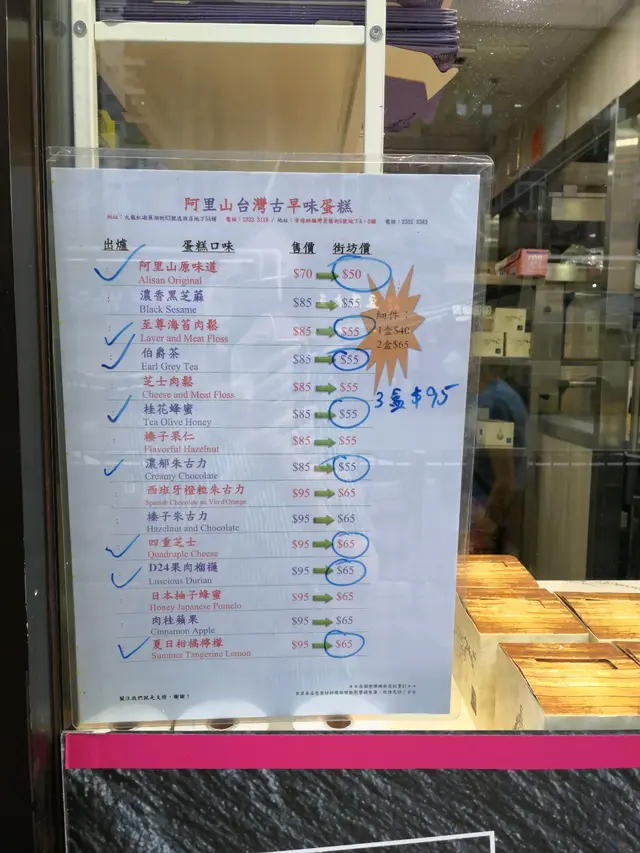 阿里山台灣古早味蛋糕
出爐 蛋糕口味 售價 街坊價
阿里山原味道 $70 $50
Alisan Original
濃香黑芝麻 $85 $55
Black Sesame
至尊海苔肉鬆 $85 $55
Layer and Meat Floss
伯爵茶 $85 $55
Earl Grey Tea
芝士肉鬆 $85 $55
Cheese and Meat Floss
桂花蜂蜜 $85 $55
Tea Olive Honey
榛子果仁 $85 $55
Flavorful Hazelnut
濃郁朱古力 $85 $55
Creamy Chocolate
西班牙橙粒朱古力 $95 $65
Spanish Chocolate
榛子朱古力 $95 $65
Hazelnut and Chocolate
四重芝士 $95 $65
Quadruple Cheese
D24果肉榴槤 $95 $65
Luscious Durian
日本柚子蜂蜜 $95 $65
Honey Japanese Pomelo
肉桂蘋果 $95 $65
Cinnamon Apple
夏日柑橘檸檬 $95 $65
Summer Tangerine Lemon
細件：
1盒$40
2盒$65
3盒$95
關注我們就是支持，謝謝！